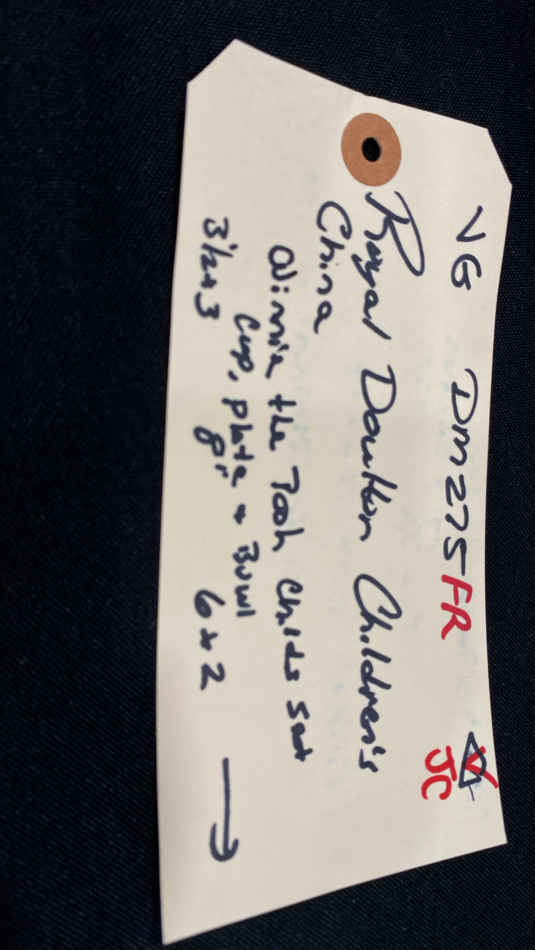 VG DM275FR JC
Royal Doulton Children's
China
Winnie the Pooh Childs set
Cup, plate + Bowl
3 1/2 x 3 8" 6 x 2 →